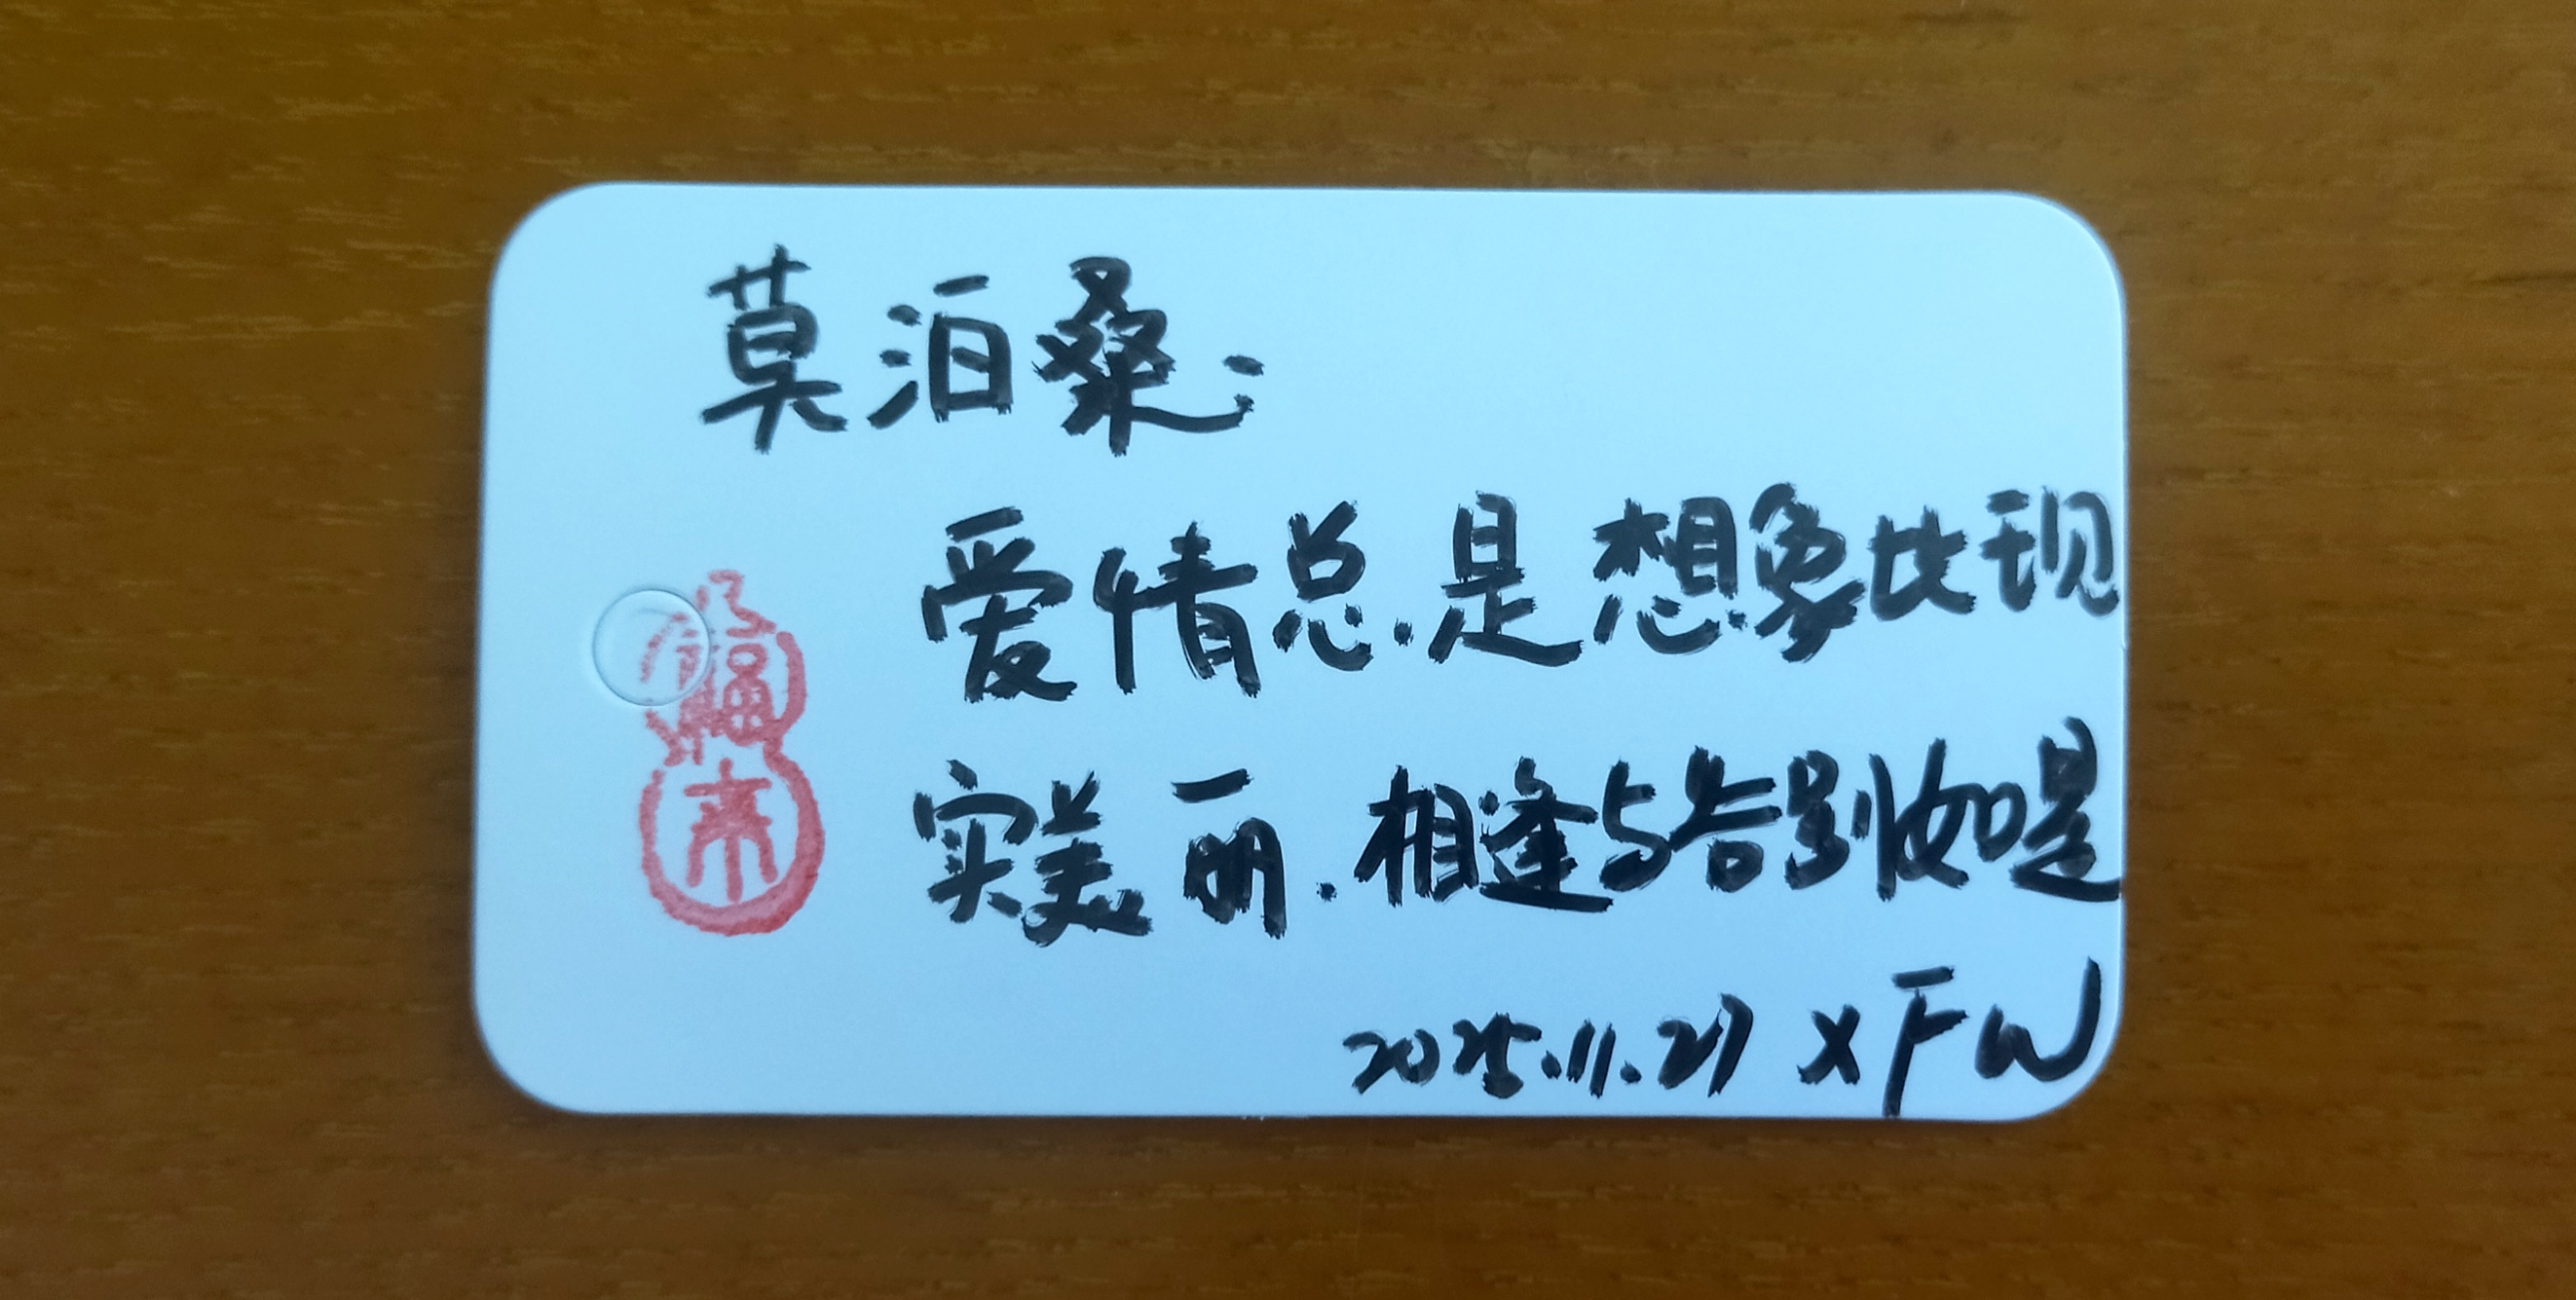 莫泊桑：
爱情总是想象比现
实美丽.相逢与告别如是
2025.11.27 XFW
福
来